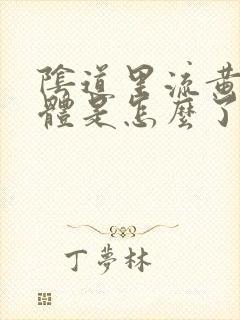 陰道里流黃
體是怎麼了
丁夢林